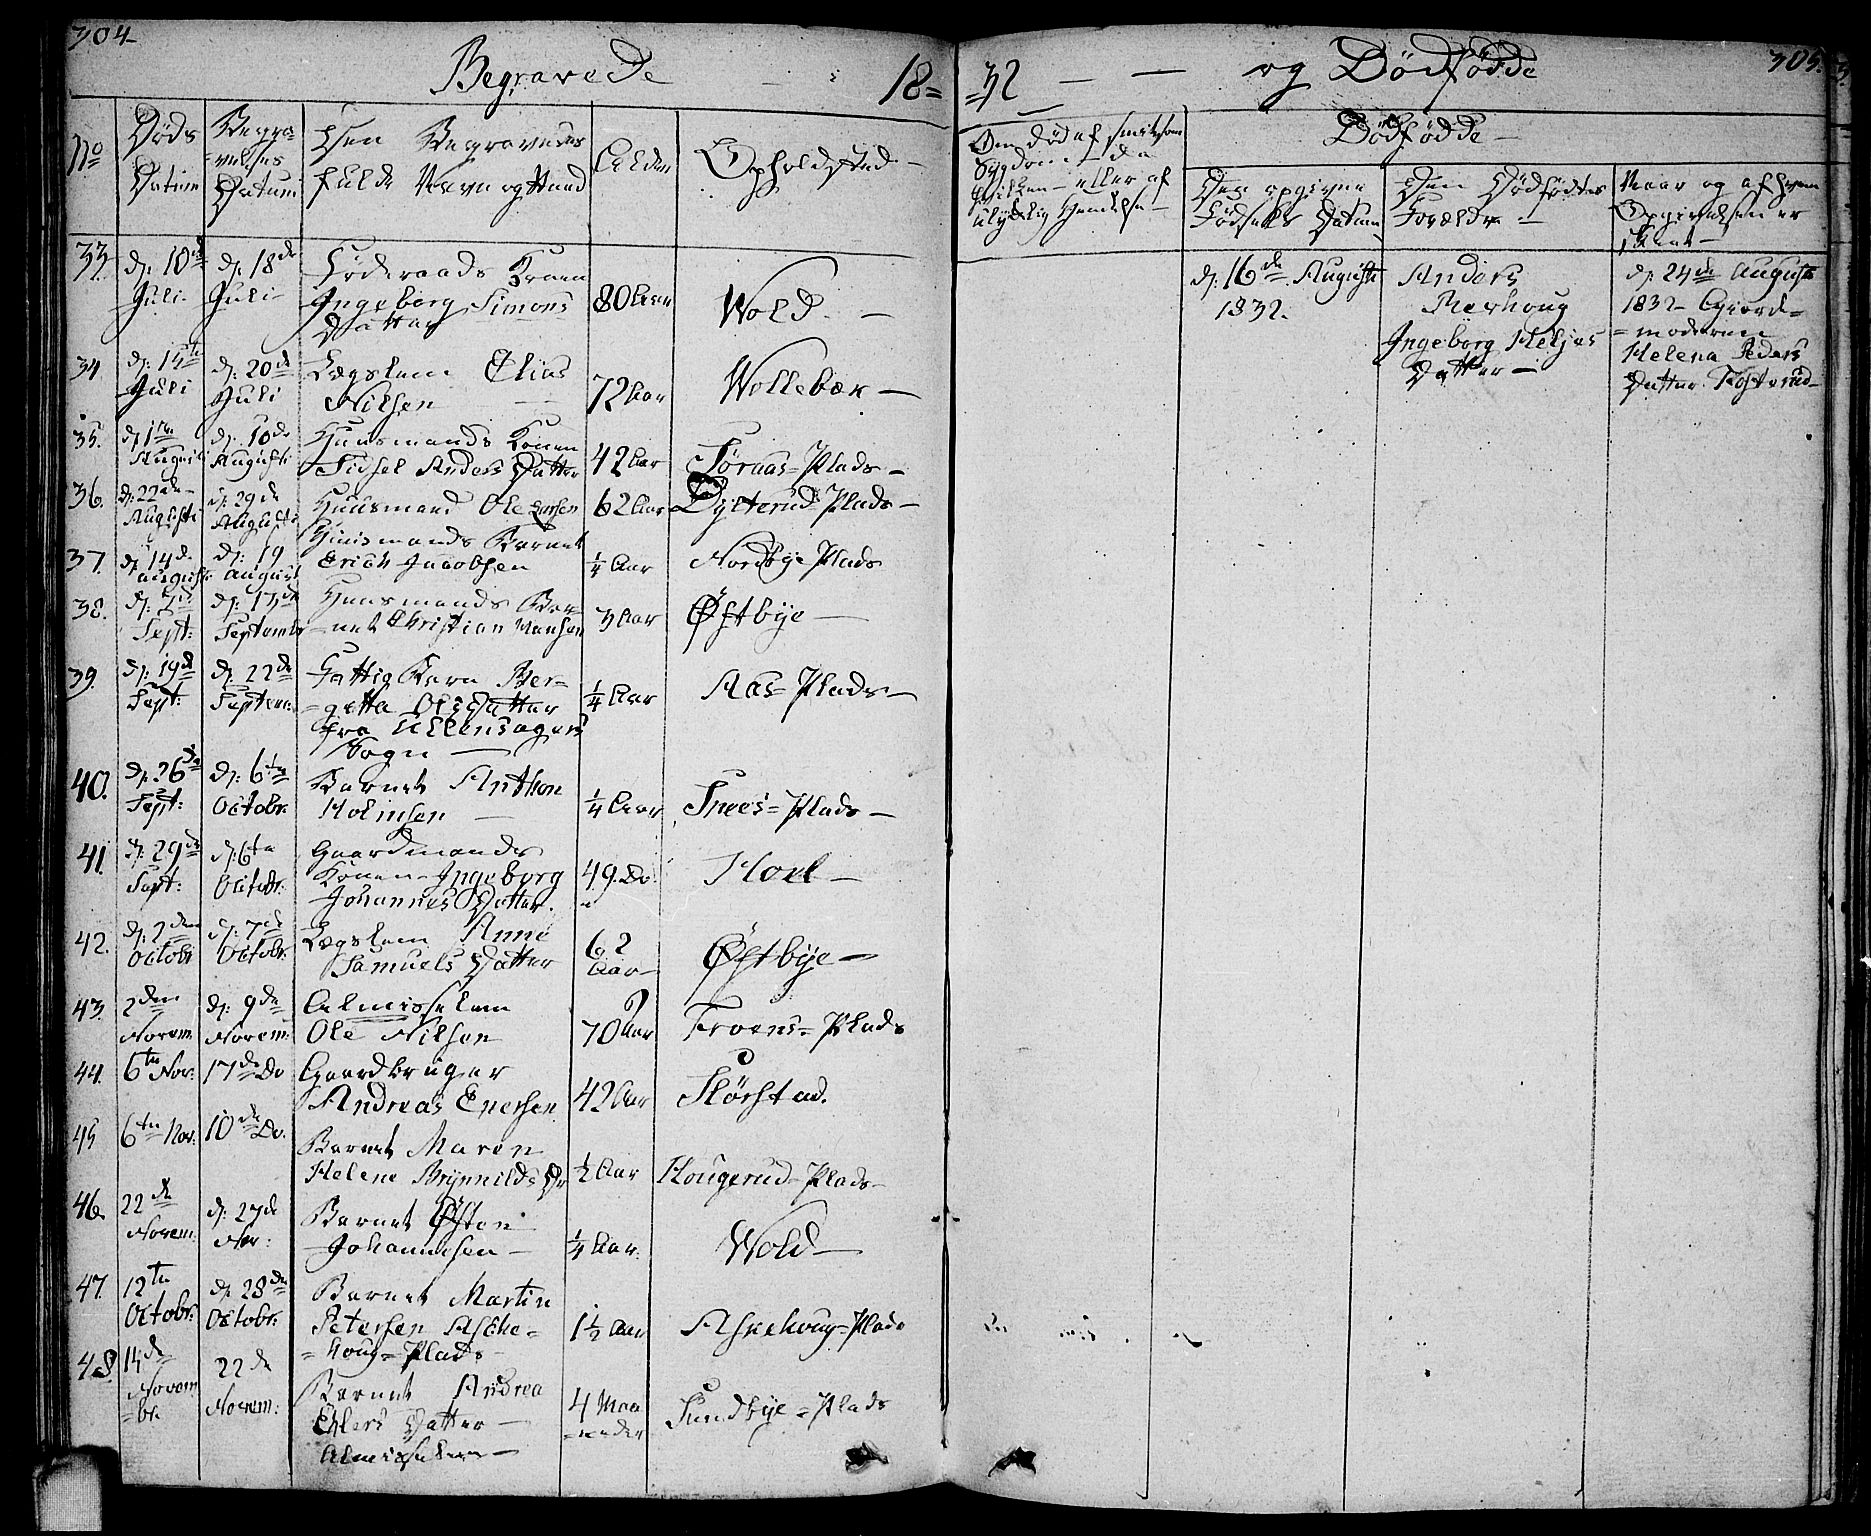 304
Begravede 18=
No
Døds Datum
Begravelses Datum
Den Begravedes fulde Navn og Stand
Alder
Opholdsted
33. d: 10de Juli d: 18de Juli Føderaads Konen Ingeborg Simons Datter 80 Aar Wold
34. d: 15te Juli d: 20de Juli Lægslem Elias Nilsen 72 Aar Wollebæk
35. d: 1te Augusti d: 10de Augusti Huusmands Konen Sidsel Anders Datter 42 Aar Søraas=Plads
36. d: 22de Augusti d: 29de Augusti Huusmand Ole Larsen 62 Aar Dytterud=Plads
37. d: 14de Augusti d: 19 August Huusmands Barnet Erich Jacobsen 1/4 Aar Nordbye Plads
38. d: 7de Sept: d: 13de September Huusmands Bar=
=net Christian Hansen 3 Aar Østbye
39. d: 19de Sept: d: 22de Septem: Fattig Barn Ber=
=gitta Ols Datter fra Ullensagers Sogn 1/4 Aar Aas=Plads
40. d: 26de Sept: d: 6te Octobr: Barnet Anthon Holmsen 1/4 Aar Snees=Plads
41. d: 29de Sept: d: 6te Octobr: Gaardmands Konen Ingeborg Johannes Datter. 49. Do Horl
42. d: 2den Octobr d: 7de Octobr: Lægslem Anne Samuels Datter 62 Aar Østbye
43. 2den Novem: d: 9de Novem: Almisselem Ole Nilsen 70 Aar Froens=Plads
44. 6te Nov: 17de Do Gaardbruger Andreas Enersen 42 Aar Slørstad.
45 6te Nov: 10de Do. Barnet Maren Helene Brynnilds Dr 1/2 Aar Hougerud=Plads
46. 22de Novem: d: 27de Nov: Barnet Østen Johannesen 1/4 Aar: Wold
47. 12te Octobr: d: 28de Octobr: Barnet Martin Petersen Aske=
=houg=Plads 1 1/2 Aar Askehoug=Plads
48. 14de Novem=
=br. 22de Novem: Barnet Andrea Ehlers Datter Almisselem 4 Maa=
=neder Sundbye=Plads
=32 og Dødfødde
305.
Om død af smitsom Sygdom da hvilken eller af ulykkelig Hendelse
Dødfødde
Den opgivne Fødsels Datum
Den Dødfødtes Forældre
Naar og af hvem Opgivelsen er skeet
d: 16de Augusti 1832.
Anders Aerhoug Ingeborg Heljes Datter
d: 24de August 1832 Giord=
=moderen Helena Peders Datter Kosterud